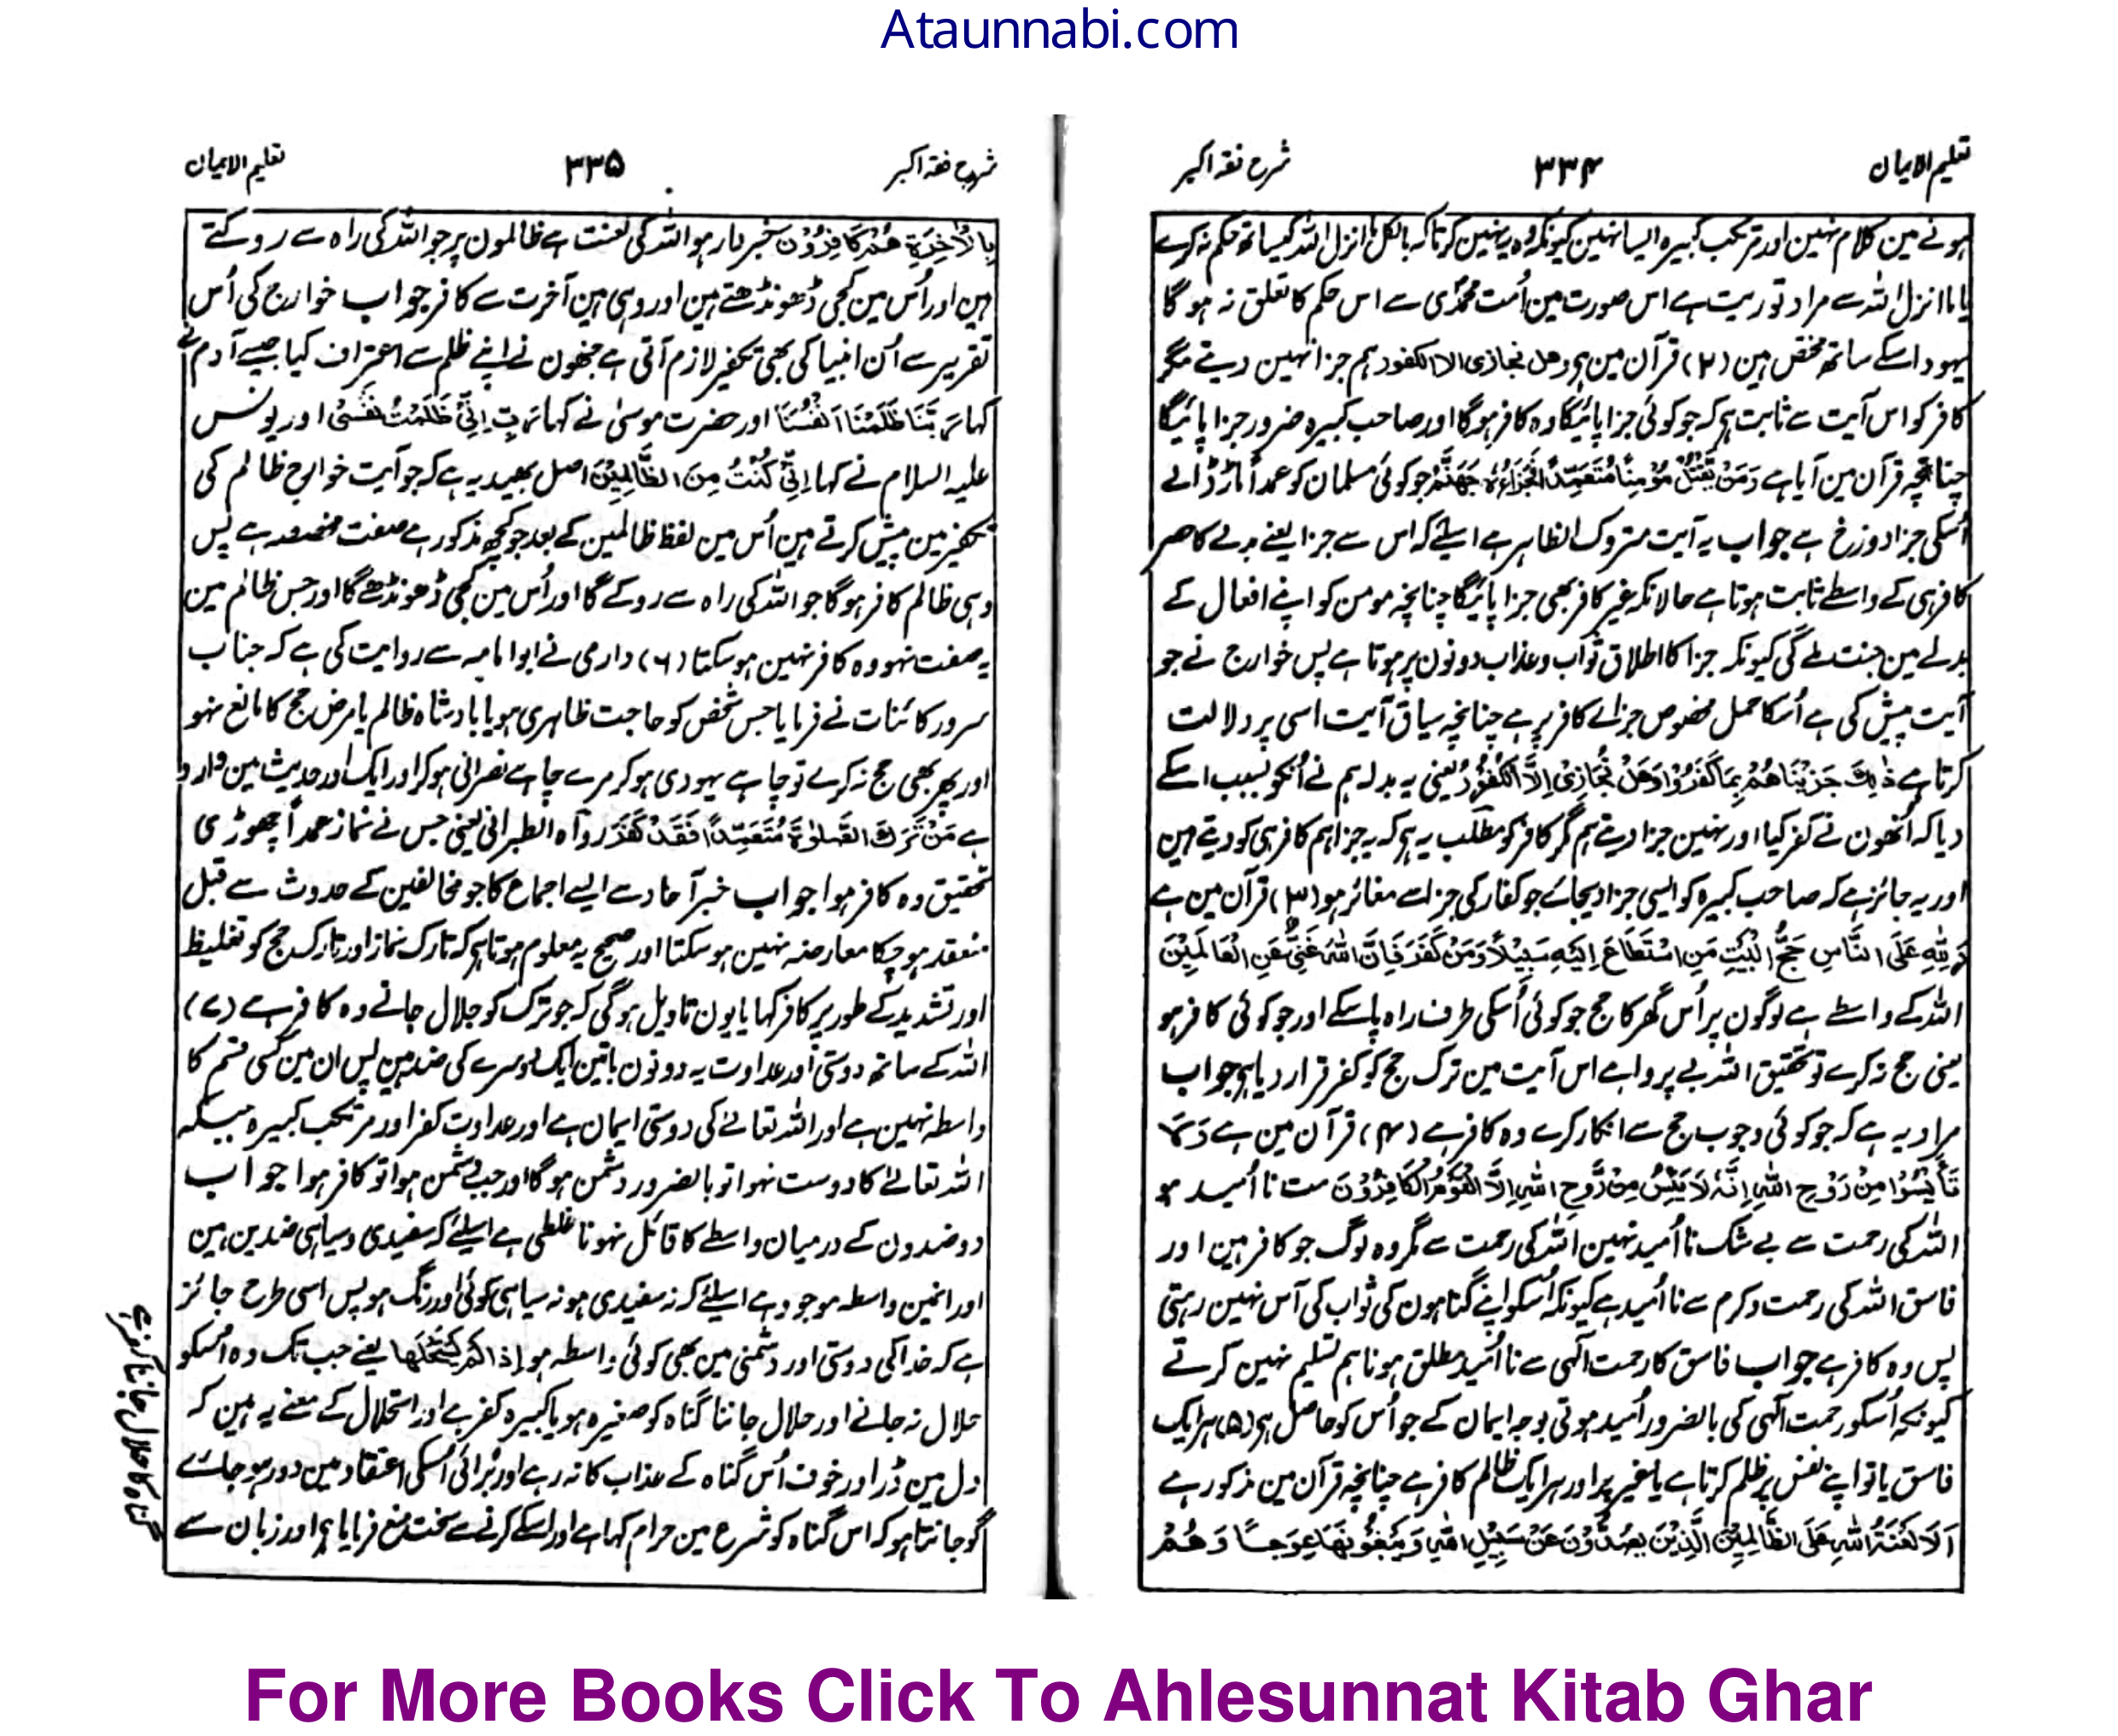 Ataunnabi.com
تعلیم الایمان ۳۳۴ شرح فقہ اکبر
ہونے مین کلام نہین اور مرتکب کبیرہ ایسا نہین کیونکہ وہ یہ نہین کرتا کہ بالکل ما انزل اللہ کیساتھ حکم نہ کرے
یا ما انزل اللہ سے مراد توریت ہے اس صورت مین اُمت محمدی سے اس حکم کا تعلق نہ ہو گا
یہود اسکے ساتھ مختص ہین (۲) قرآن مین ہی وهل نجازی الا الکفور ہم جزا نہین دیتے مگر
کافر کو اس آیت سے ثابت ہی کہ جو کوئی جزا پائیگا وہ کافر ہوگا اور صاحب کبیرہ ضرور جزا پائیگا
چنانچہ قرآن مین آیا ہے وَمَنْ يَّقْتُلْ مُؤْمِنًا مُّتَعَمِّدًا فَجَزَاؤُهٗ جَهَنَّمُ جو کوئی مسلمان کو عمداً مار ڈالے
اُسکی جزا دوزخ ہے جواب یہ آیت متروک الظاہر ہے اسلیے کہ اس سے جزا یعنے بدلے کا حصر
کافر ہی کے واسطے ثابت ہوتا ہے حالانکہ غیر کافر بھی جزا پائیگا چنانچہ مومن کو اپنے افعال کے
بدلے مین جنت ملے گی کیونکہ جزا کا اطلاق ثواب و عذاب دونون پر ہوتا ہے پس خوارج نے جو
آیت پیش کی ہے اُسکا حمل مخصوص جزاے کافر پر ہے چنانچہ سیاق آیت اسی پر دلالت
کرتا ہے ذٰلِكَ جَزَيْنَاهُمْ بِمَا كَفَرُوْا وَهَلْ نُجَازِیْ اِلَّا الْكَفُوْرَ یعنی یہ بدلہ ہم نے اُنکو بسبب اسکے
دیا کہ اُنھون نے کفر کیا اور نہین جزا دیتے ہم مگر کافر کو مطلب یہ ہی کہ یہ جزا ہم کافر ہی کو دیتے ہین
اور یہ جائز ہے کہ صاحب کبیرہ کو ایسی جزا دیجائے جو کفار کی جزا سے مغائر ہو (۳) قرآن مین ہے
وَ لِلّٰهِ عَلَى النَّاسِ حَجُّ الْبَيْتِ مَنِ اسْتَطَاعَ اِلَيْهِ سَبِيْلًا وَمَنْ كَفَرَ فَاِنَّ اللّٰهَ غَنِیٌّ عَنِ الْعَالَمِيْنَ
اللہ کے واسطے ہے لوگون پر اُس گھر کا حج جو کوئی اُسکی طرف راہ پاسکے اور جو کوئی کافر ہو
یعنی حج نہ کرے تو تحقیق اللہ بے پروا ہے اس آیت مین ترک حج کو کفر قرار دیا ہی جواب
مراد یہ ہے کہ جو کوئی وجوب حج سے انکار کرے وہ کافر ہے (۴) قرآن مین ہے وَلَا
تَاْيْئَسُوْا مِنْ رَّوْحِ اللّٰهِ اِنَّهٗ لَا يَيْئَسُ مِنْ رَّوْحِ اللّٰهِ اِلَّا الْقَوْمُ الْكَافِرُوْنَ مت نا اُمید ہو
اللہ کی رحمت سے بے شک نا اُمید نہین اللہ کی رحمت سے مگر وہ لوگ جو کافر ہین اور
فاسق اللہ کی رحمت و کرم سے نا اُمید ہے کیونکہ اُسکو اپنے گناہون کی ثواب کی آس نہین رہتی
پس وہ کافر ہے جواب فاسق کا رحمت الٰہی سے نا اُمید مطلق ہونا ہم تسلیم نہین کرتے
کیونکہ اُسکو رحمت الٰہی کی بالضرور اُمید ہوتی بوجہ ایمان کے جو اُس کو حاصل ہی (۵) ہر ایک
فاسق یا تو اپنے نفس پر ظلم کرتا ہے یا غیر پر اور ہر ایک ظالم کافر ہے چنانچہ قرآن مین مذکور ہے
اَلَا لَعْنَةُ اللّٰهِ عَلَى الظَّالِمِيْنَ الَّذِيْنَ يَصُدُّوْنَ عَنْ سَبِيْلِ اللّٰهِ وَيَبْغُوْنَهَا عِوَجًا وَهُمْ
شرح فقہ اکبر ۳۳۵ تعلیم الایمان
بِالْاٰخِرَةِ هُمْ كَافِرُوْنَ خبردار ہو اللہ کی لعنت ہے ظالمون پر جو اللہ کی راہ سے روکتے
ہین اور اُس مین کجی ڈھونڈھتے ہین اور وہی ہین آخرت سے کافر جواب خوارج کی اُس
تقریر سے اُن انبیا کی بھی تکفیر لازم آتی ہے جنھون نے اپنے ظلم سے اعتراف کیا جیسے آدم نے
کہا رَبَّنَا ظَلَمْنَا اَنْفُسَنَا اور حضرت موسیٰ نے کہا رَبِّ اِنِّیْ ظَلَمْتُ نَفْسِیْ اور یونس
علیہ السلام نے کہا اِنِّیْ كُنْتُ مِنَ الظَّالِمِيْنَ اصل بھید یہ ہے کہ جو آیت خوارج ظالم کی
تکفیر مین پیش کرتے ہین اُس مین لفظ ظالمین کے بعد جو کچھ مذکور ہے صفت مخصصہ ہے پس
وہی ظالم کافر ہوگا جو اللہ کی راہ سے روکے گا اور اُس مین کجی ڈھونڈھے گا اور جس ظالم مین
یہ صفت نہو وہ کافر نہین ہو سکتا (۶) دارمی نے ابو امامہ سے روایت کی ہے کہ جناب
سرور کائنات نے فرمایا جس شخص کو حاجت ظاہری ہو یا بادشاہ ظالم یا مرض حج کا مانع نہو
اور پھر بھی حج نہ کرے تو چاہے یہودی ہو کر مرے چاہے نصرانی ہو کر اور ایک اور حدیث مین وارد
ہے مَنْ تَرَكَ الصَّلٰوةَ مُتَعَمِّدًا فَقَدْ كَفَرَ رواہ الطبرانی یعنی جس نے نماز عمداً چھوڑی
تحقیق وہ کافر ہوا جواب خبر آحاد سے ایسے اجماع کا جو مخالفین کے حدوث سے قبل
منعقد ہو چکا معارضہ نہین ہو سکتا اور صحیح یہ معلوم ہوتا ہی کہ تارک نماز اور تارک حج کو تغلیظ
اور تشدید کے طور پر کافر کہا یا یون تاویل ہو گی کہ جو ترک کو حلال جانے وہ کافر ہے (۷)
اللہ کے ساتھ دوستی اور عداوت یہ دونون باتین ایک دوسرے کی ضد ہین پس ان مین کسی قسم کا
واسطہ نہین ہے اور اللہ تعالےٰ کی دوستی ایمان ہے اور عداوت کفر اور مرتکب کبیرہ جبکہ
اللہ تعالےٰ کا دوست نہوا تو بالضرور دشمن ہو گا اور جب دشمن ہوا تو کافر ہوا جواب
دو ضدون کے درمیان واسطے کا قائل نہونا غلطی ہے اسلیے کہ سفیدی و سیاہی ضدین ہین
اور انمین واسطہ موجود ہے اسلیے کہ نہ سفیدی ہو نہ سیاہی کوئی اور رنگ ہو پس اسی طرح جائز
ہے کہ خدا کی دوستی اور دشمنی مین بھی کوئی واسطہ ہو اِذا لَمْ يَسْتَحِلَّهَا یعنے جب تک وہ اُسکو
حلال نہ جانے اور حلال جاننا گناہ کو صغیرہ ہو یا کبیرہ کفر ہے اور استحلال کے معنے یہ ہین کہ
دل مین ڈر اور خوف اُس گناہ کے عذاب کا نہ رہے اور بُرائی اُسکی اعتقاد مین دور ہو جائے
گو جانتا ہو کہ اس گناہ کو شرع مین حرام کہا ہے اور اسکے کرنے سے سخت منع فرمایا ہی اور زبان سے
گناہ کا حلال جاننا کفر ہے
For More Books Click To Ahlesunnat Kitab Ghar